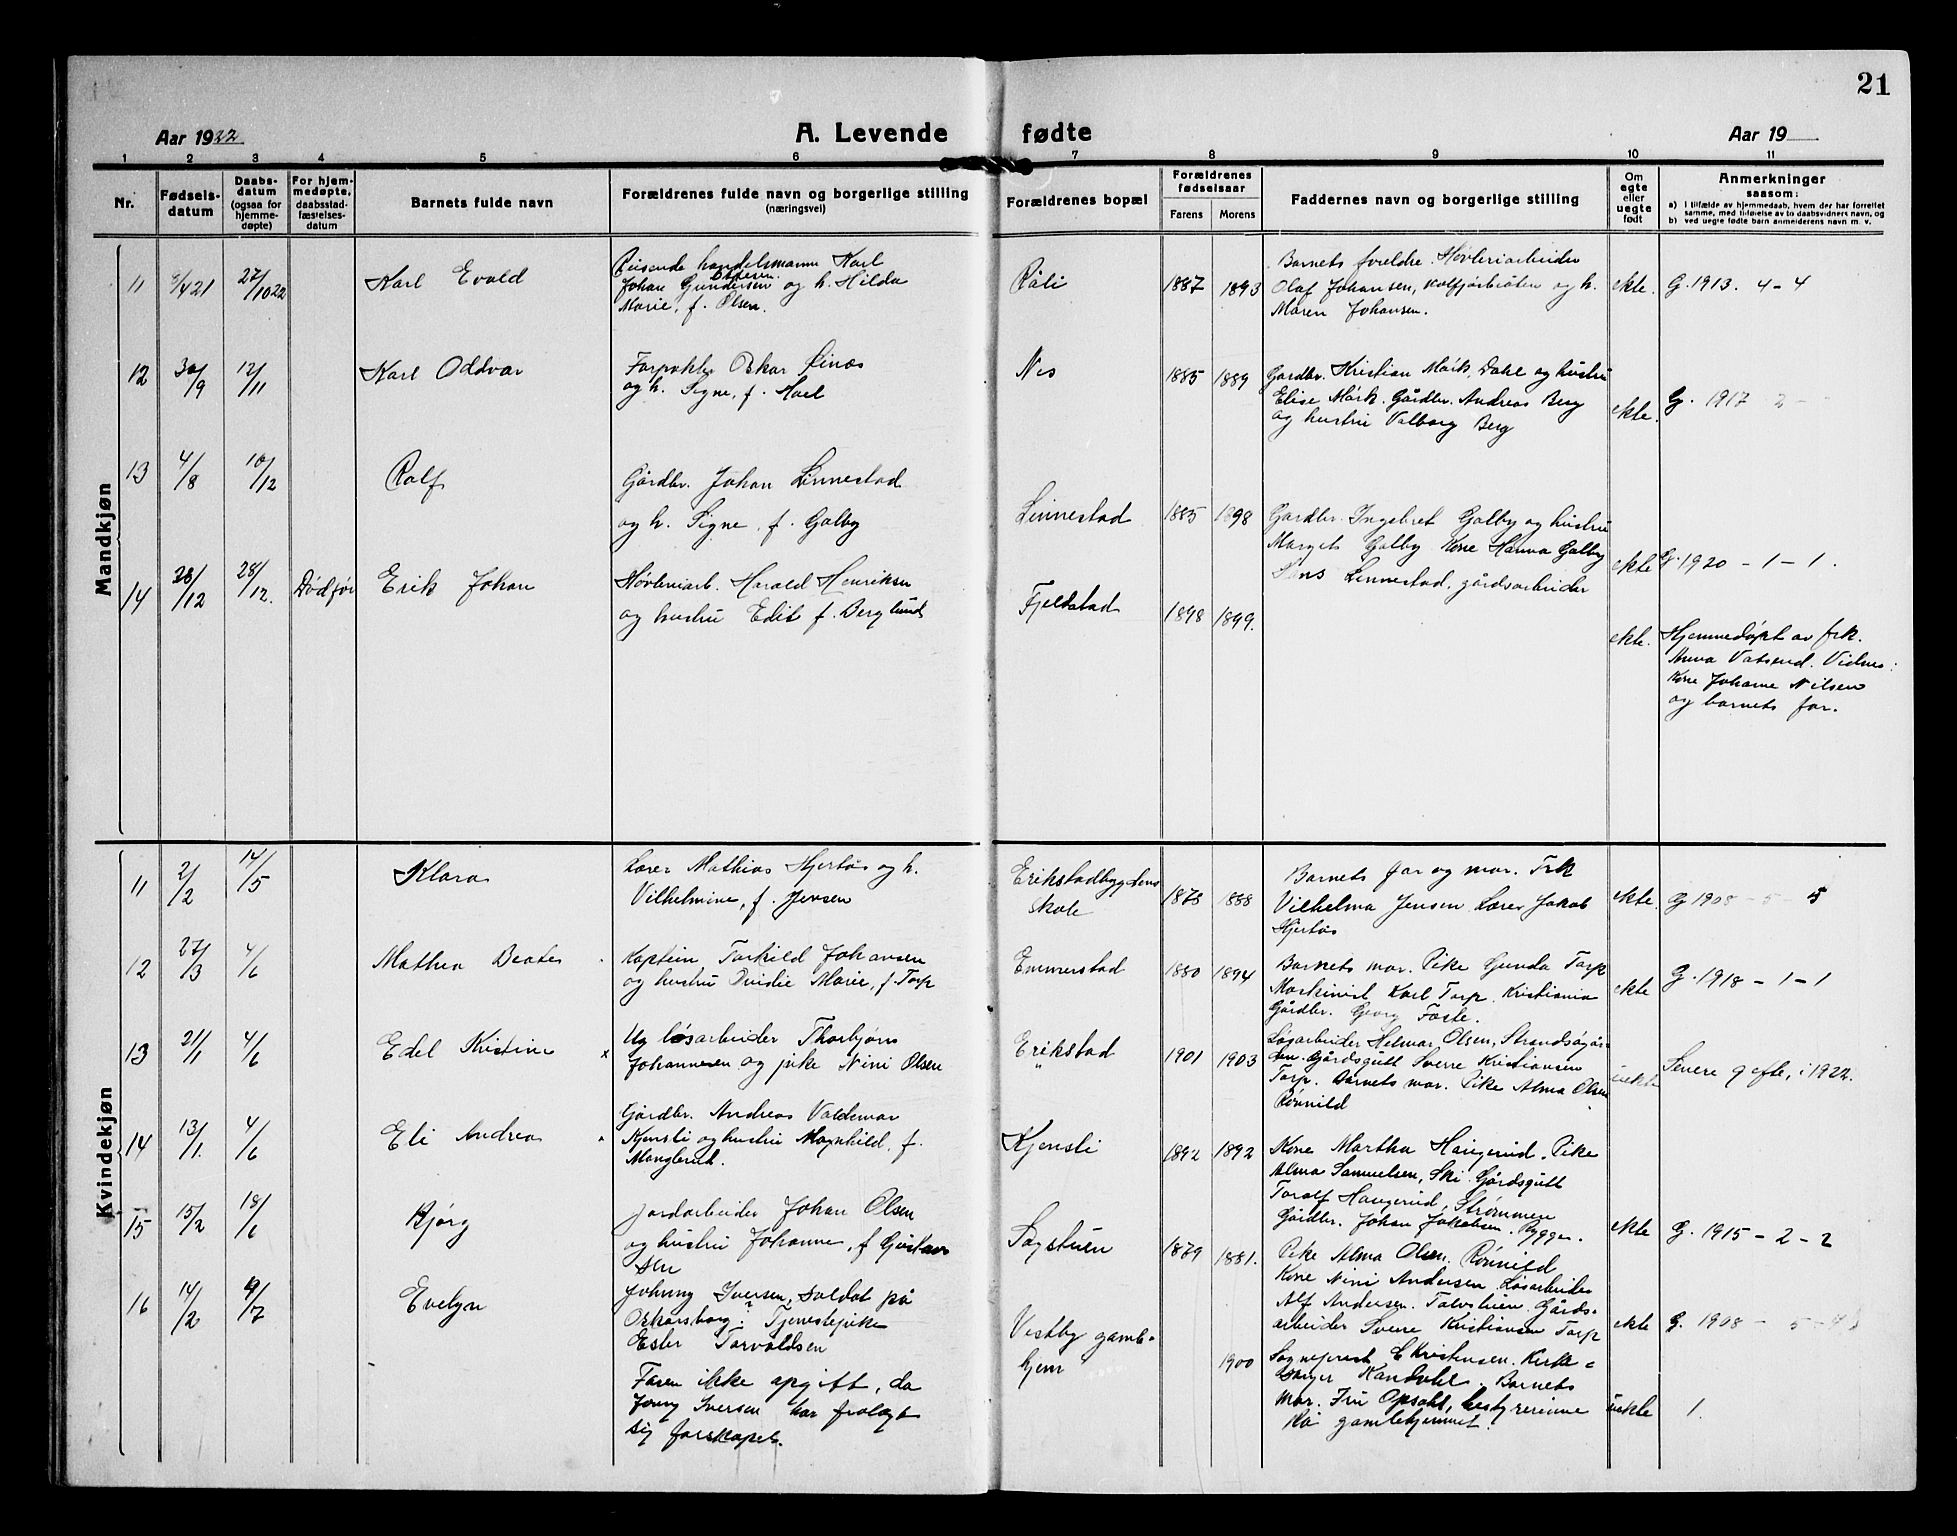 21
Aar 1922
A. Levende fødte
Aar 19
1 2 3 4 5 6 7 8 9 10 11
Nr.
Fødsels-
datum
Daabs-
datum
(ogsaa for
hjemme-
døpte)
For hjem-
medøpte,
daabsstad-
fæstelses-
datum
Barnets fulde navn
Forældrenes fulde navn og borgerlige stilling
(næringsvei)
Forældrenes bopæl
Forældrenes
fødselsaar
Farens Morens
Faddernes navn og borgerlige stilling
Om
egte
eller
uegte
født
Anmerkninger
saasom:
a) I tilfælde av hjemmedaab, hvem der har forrettet
samme, med tilføielse av to daabsvidners navn, og
b) ved uegte fødte barn anmelderens navn m. v.
Mandkjøn
11 /4 21 27/10 22 Karl Evald
Reisende handelsmann Karl
Johan Gundersen og h. Hilda
Marie, f. Olsen.
Råli 1887 1893
Barnets foreldre. Høvleriarbeider
Olaf Johansen, og h.
Maren Johansen.
ekte. G. 1913. 4-4
12 30/9 12/11 Karl Oddvar
Forpakter Oskar
og h. Signe, f. Hoel
Nes 1885 1889
Gardbr. Kristian Mørk, Dahl og hustru
Elise Mørk. Gårdbr. Andreas Berg
og hustru Valborg Berg
ekte. G. 1917 2 -
13 4/8 10/12 Rolf
Gårdbr. Johan Linnestad
og h. Signe, f. Galby
Linnestad 1885 1898
Gardbr. Ingebret Galby og hustru
Margit Galby Kone Hanna Galby
Jens Linnestad, gårdsarbeider
ekte G 1920 - 1 - 1.
14 28/12 28/12. Død før Erik Johan
Høvleriarb. Harald Henriksen
og hustru Edit f. Berglund
Fjellstad 1898 1899.
ekte. Hjemmedøpt av frk.
Anna Vatsend. Vidner:
Kone Johanne Nilsen
og barnets far.
Kvindekjøn
11 2/2 14/5 Klara
Lærer Mathias Hjertøs og h.
Vilhelmine, f. Jensen
Erikstadbygdens
skole
1878 1888
Barnets far og mor. Frk
Vilhelma Jensen Lærer Jakob
Hjertøs
ekte. G 1908 - 5 - 5
12 27/3 4/6 Mathea Beate
Kaptein Torkild Johansen
og hustru Marie, f. Torp
Emmerstad 1880 1894
Barnets mor. Pike Gunda Torp
Maskinist Karl Torp Kristiania
Gårdbr. Georg Fosle.
ekte G. 1918 - 1 - 1
13 21/1 4/6 Edel Kristine x
Ug løsarbeider Thorbjørn
Johannesen og pike Nini Olsen
Erikstad 1901 1903
Løsarbeider Helmar Olsen, Strandsøgår-
den. Gårdsgutt Sverre Kristiansen
Torp. Barnets mor. Pike Alma Olsen
Rønnild
uekte Senere gifte, i 1922.
14 13/1. 4/6 Eli Andrea x
Gårdbr. Andreas Valdemar
Kjensli og hustru Magnhild, f.
Manglerud.
Kjensli 1892 1892
Kone Martha Haugerud. Pike
Alma Samuelsen, Ski Gårdsgutt
Toralf Haugerud, Strømmen
Gårdbr. Johan Jakobsen. Rygge.
ekte G. 1915 - 2 - 2
15 15/2 18/6 Bjørg
Jordarbeider Johan Olsen
og hustru Johanne, f Gustav
sen
Sagstuen 1879 1881.
Pike Alma Olsen. Rønnild
Kone Nini Andersen Løsarbeider
Alf Andersen. Gårds-
arbeider Sverre Kristiansen Torp
ekte G. 1908 - 5 - 4
16 14/2 9/7 Evelyn
Johnny Iversen, soldat på
Oskarsborg? Tjenestepike
Ester Torvaldsen
Faren ikke opgitt, da
Jonny Iversen har fralagt
sig farskapet.
Vestby gamle-
hjem
1900
Sogneprest E Kristensen. Kirke-
sanger Barnets
mor. Fru Opsahl, bestyrerinne
på gamlehjemmet.
uekte 1.